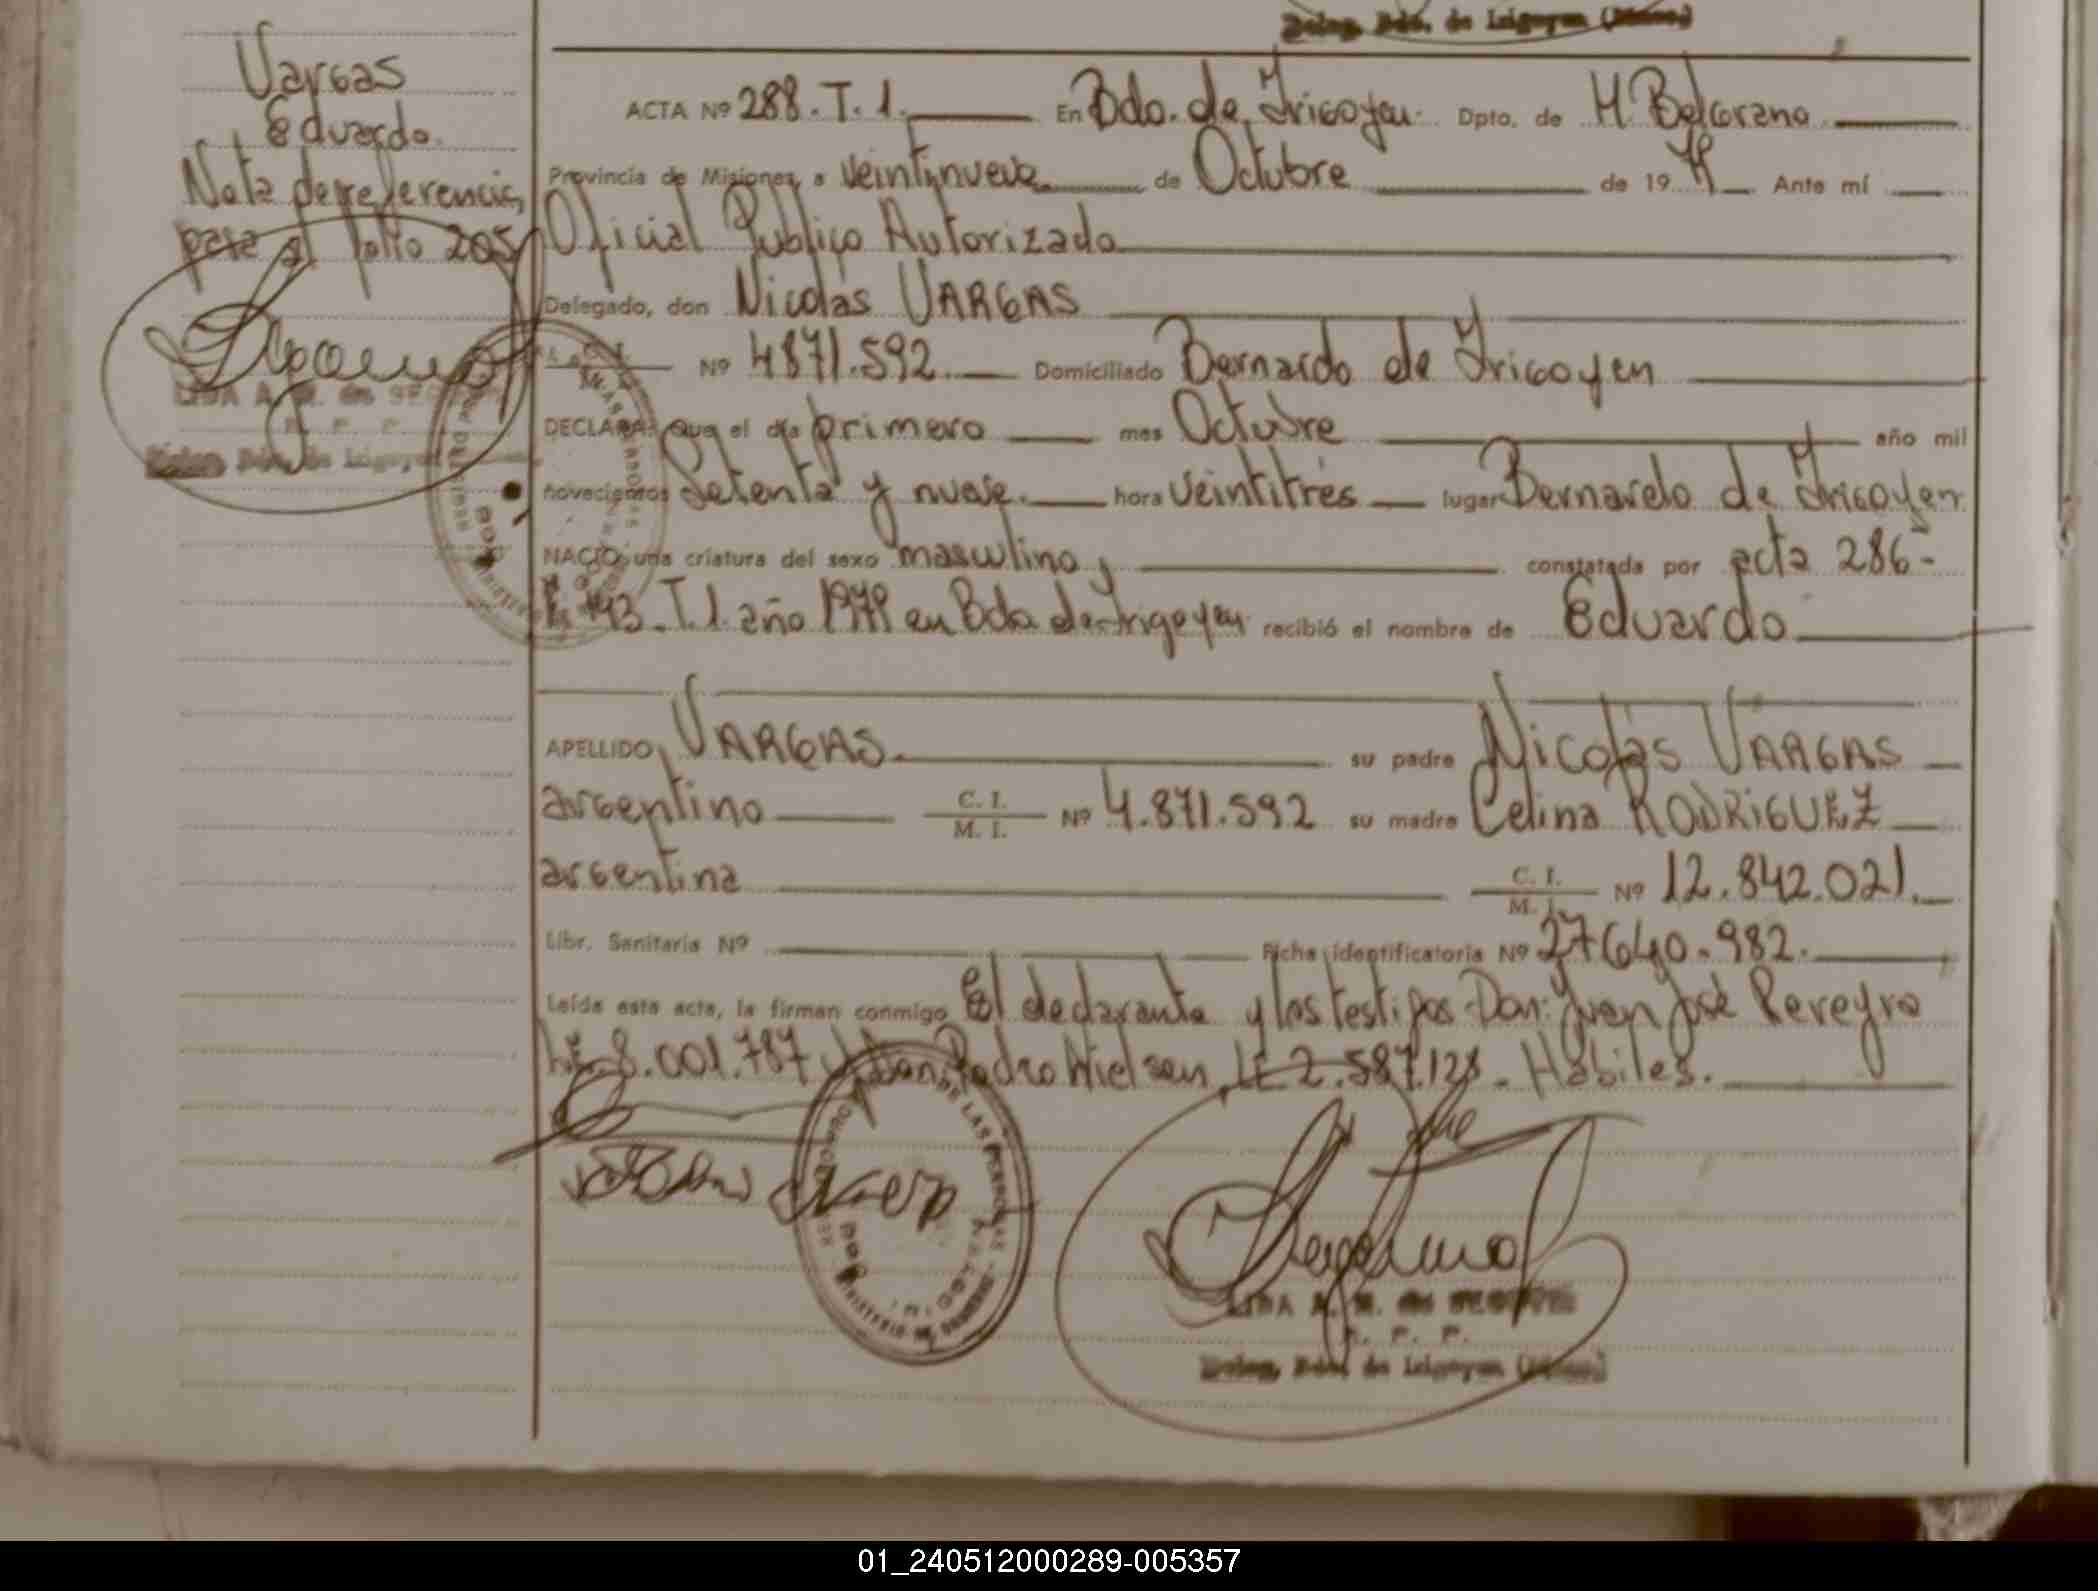 Deleg. Bdo. de Irigoyen (Mnes)
Vargas
Eduardo.
Nota de referencia
para el folio 205
LIDA A. M. de
O. P. P.
Deleg. Bdo. de Irigoyen
ACTA Nº 288. T. 1. En Bdo. de Irigoyen. Dpto. de M. Belgrano
Provincia de Misiones, a veintinueve de Octubre de 19 79 Ante mí
Oficial Público Autorizado
Delegado, don Nicolás VARGAS
Nº 4871.592. Domiciliado Bernardo de Irigoyen
DECLARA: Que el día primero mes Octubre año mil
novecientos Setenta y nueve. hora veintitrés lugar Bernardo de Irigoyen
NACIO una criatura del sexo masculino, constatada por acta 286-
143. T. 1. año 1979 en Bdo de Irigoyen recibió el nombre de Eduardo
APELLIDO VARGAS. su padre Nicolás VARGAS
argentino C. I. M. I. Nº 4.871.592 su madre Celina RODRIGUEZ
argentina C. I. M. I. Nº 12.842.021.
Libr. Sanitaria Nº Ficha identificatoria Nº 27640.982.
Leída esta acta, la firman conmigo El declarante y los testigos Don: Juan José Pereyra
L.E. 8.001.787 y Don Pedro Nielsen, LE 2.587.128. Hábiles.
DE LAS PERSONAS
MINISTERIO DE GOBIERNO
LIDA A. M. de
O. P. P.
Deleg. Bdo. de Irigoyen (Mnes)
01_240512000289-005357